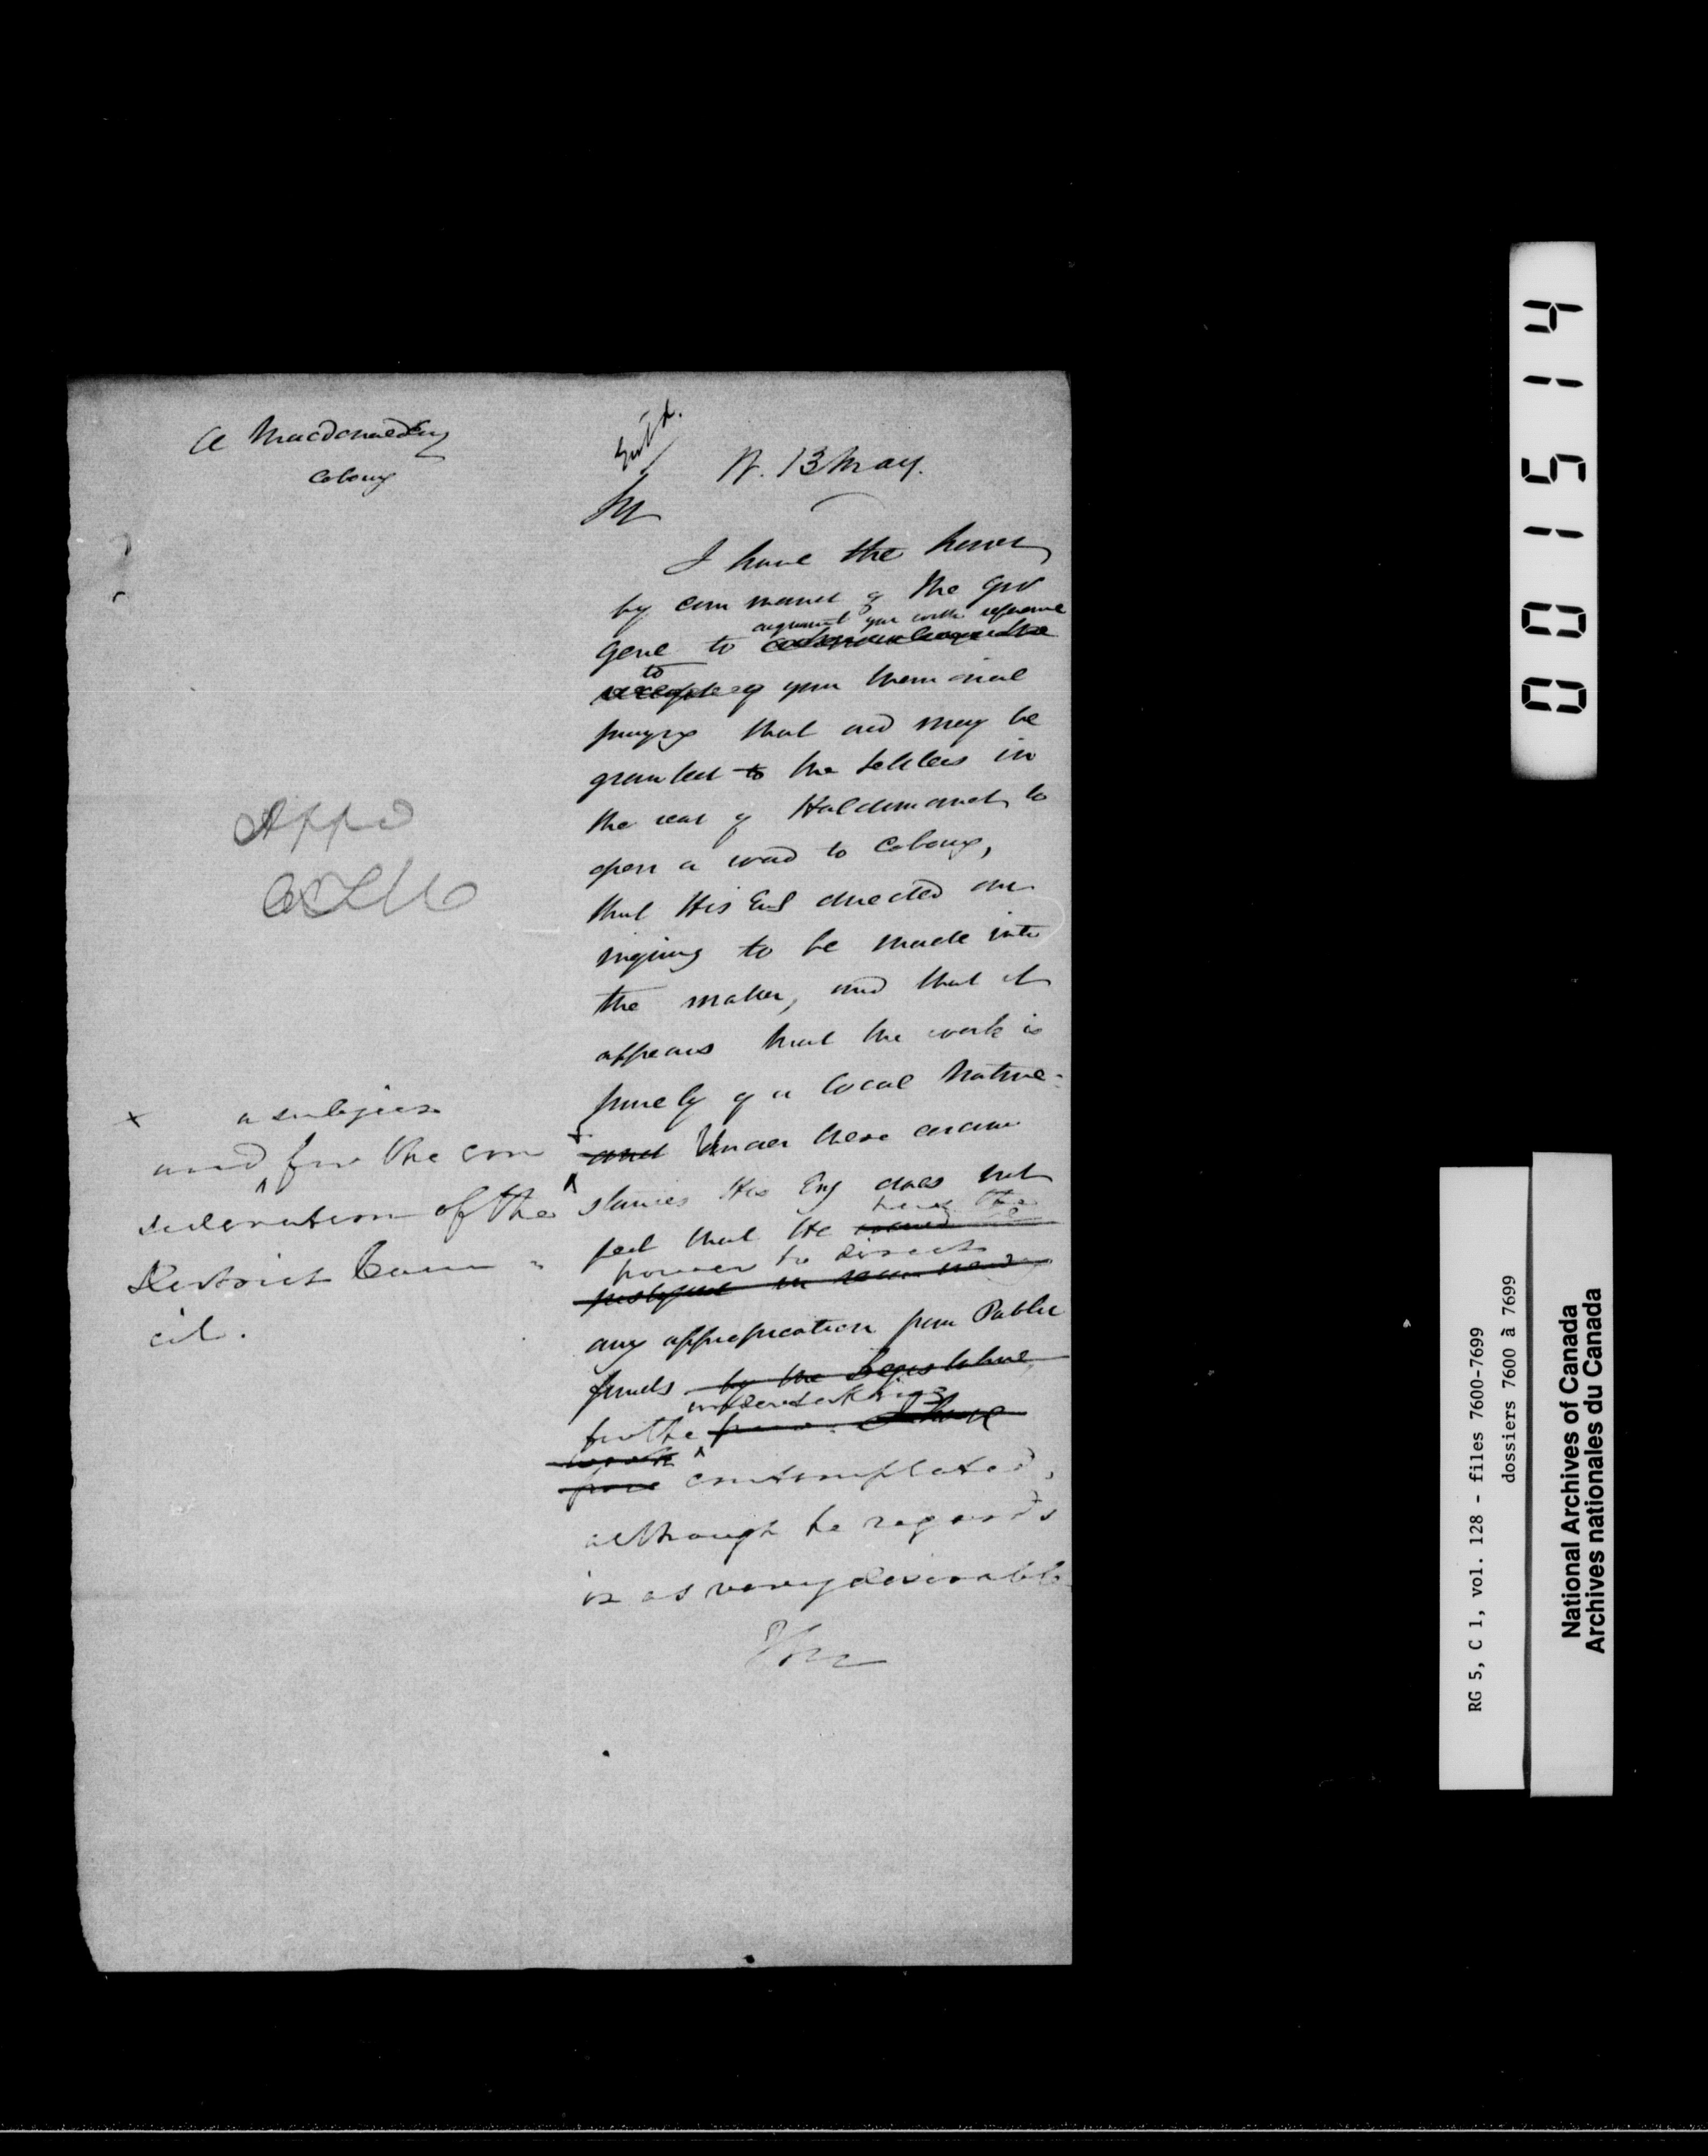 A Macdonald Esq
Cobourg
Ent'd.
13 May.
Sir
I have the honor
by command of the Gov
Genl to acquaint you with reference
acknowledge the
to
receipt of your memorial
praying that aid may be
granted to the settlers in
the rear of Haldimand to
open a road to Cobourg,
that His Exc directed an
inquiry to be made into
the matter, and that it
appears that the work is
purely of a local nature
x a subject
and for the con
sideration of the
District Coun
cil.
and Under these circum
stances His Exy does not
feel that He have the
power to direct
any appropriation from Public
funds by the Legislature
for the undertaking
work
contemplated,
although he regards
it as very desirable
Appd
00 15 14
RG 5, C 1, vol. 128 - files 7600-7699
dossiers 7600 à 7699
National Archives of Canada
Archives nationales du Canada